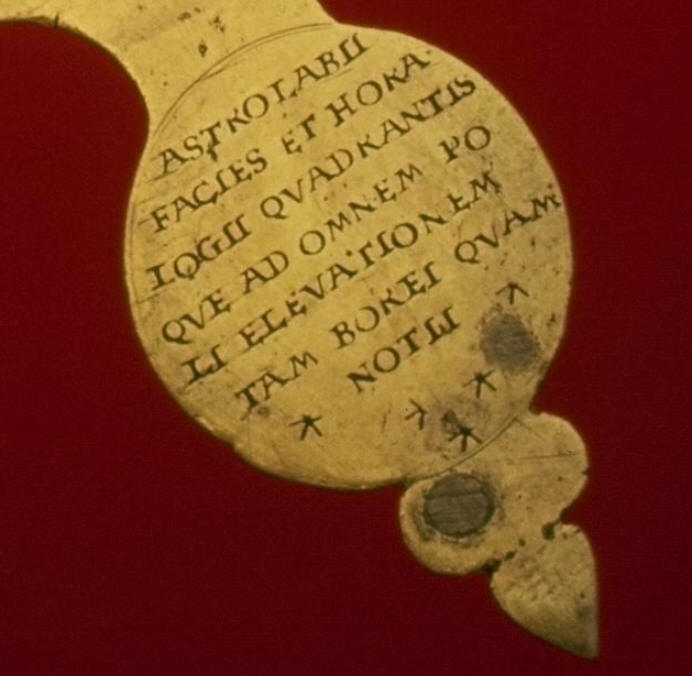 ASTROLABII
FACIES ET HORA
LOGII QVADRANTIS
QVE AD OMNEM PO
LI ELEVATIONEM
TAM BOREI QVAM
NOTII